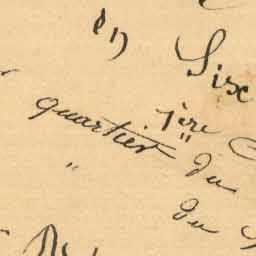 en Six
1ère
quartier du
du